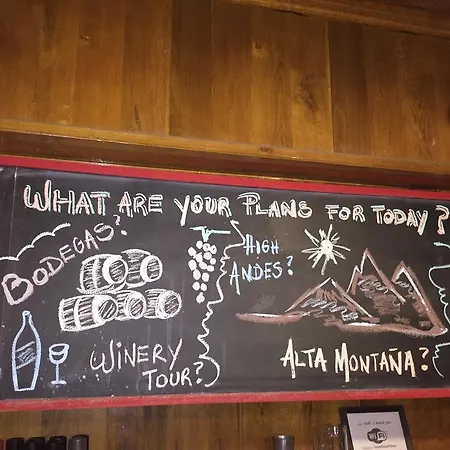 WHAT ARE YOUR PLANS FOR TODAY?
BODEGAS?
WINERY
TOUR?
HIGH
ANDES?
ALTA MONTAÑA?
WiFi